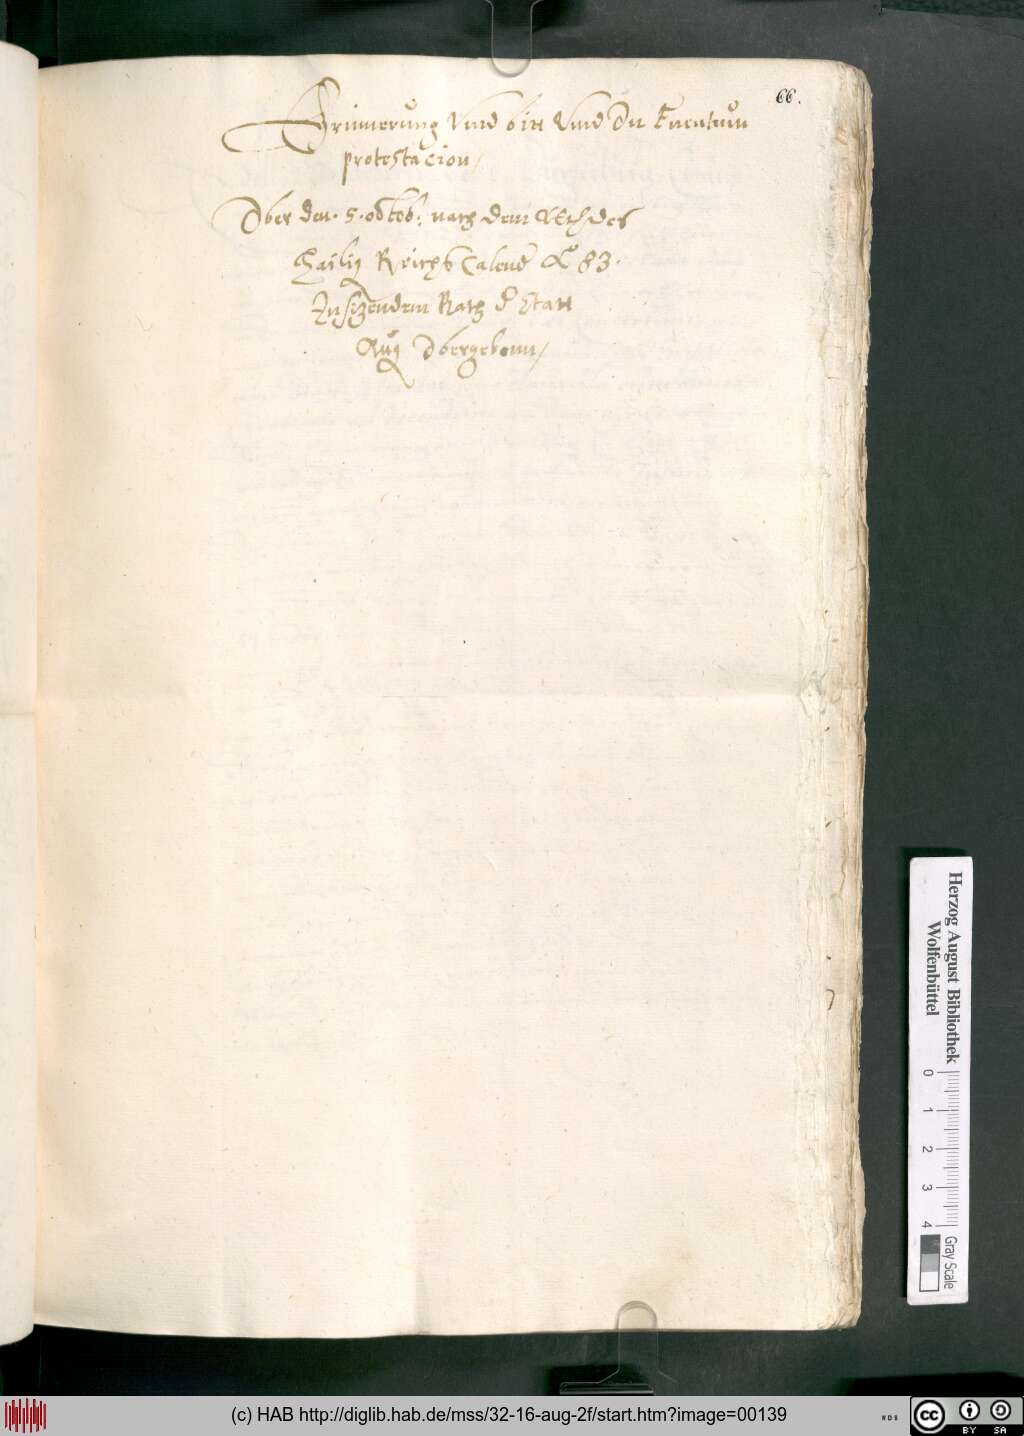 66.
Erinnerung Vnnd bitt Vnnd In Euentum
protestacion /
Vber den. 5. octob: nach dem des
Hailig Reichs Calend A° 83.
In sizendem Rath d Statt
Aug Vbergebenn /
Herzog August Bibliothek
Wolfenbüttel
0 1 2 3 4
Gray Scale
(c) HAB http://diglib.hab.de/mss/32-16-aug-2f/start.htm?image=00139
WDB
CC BY SA